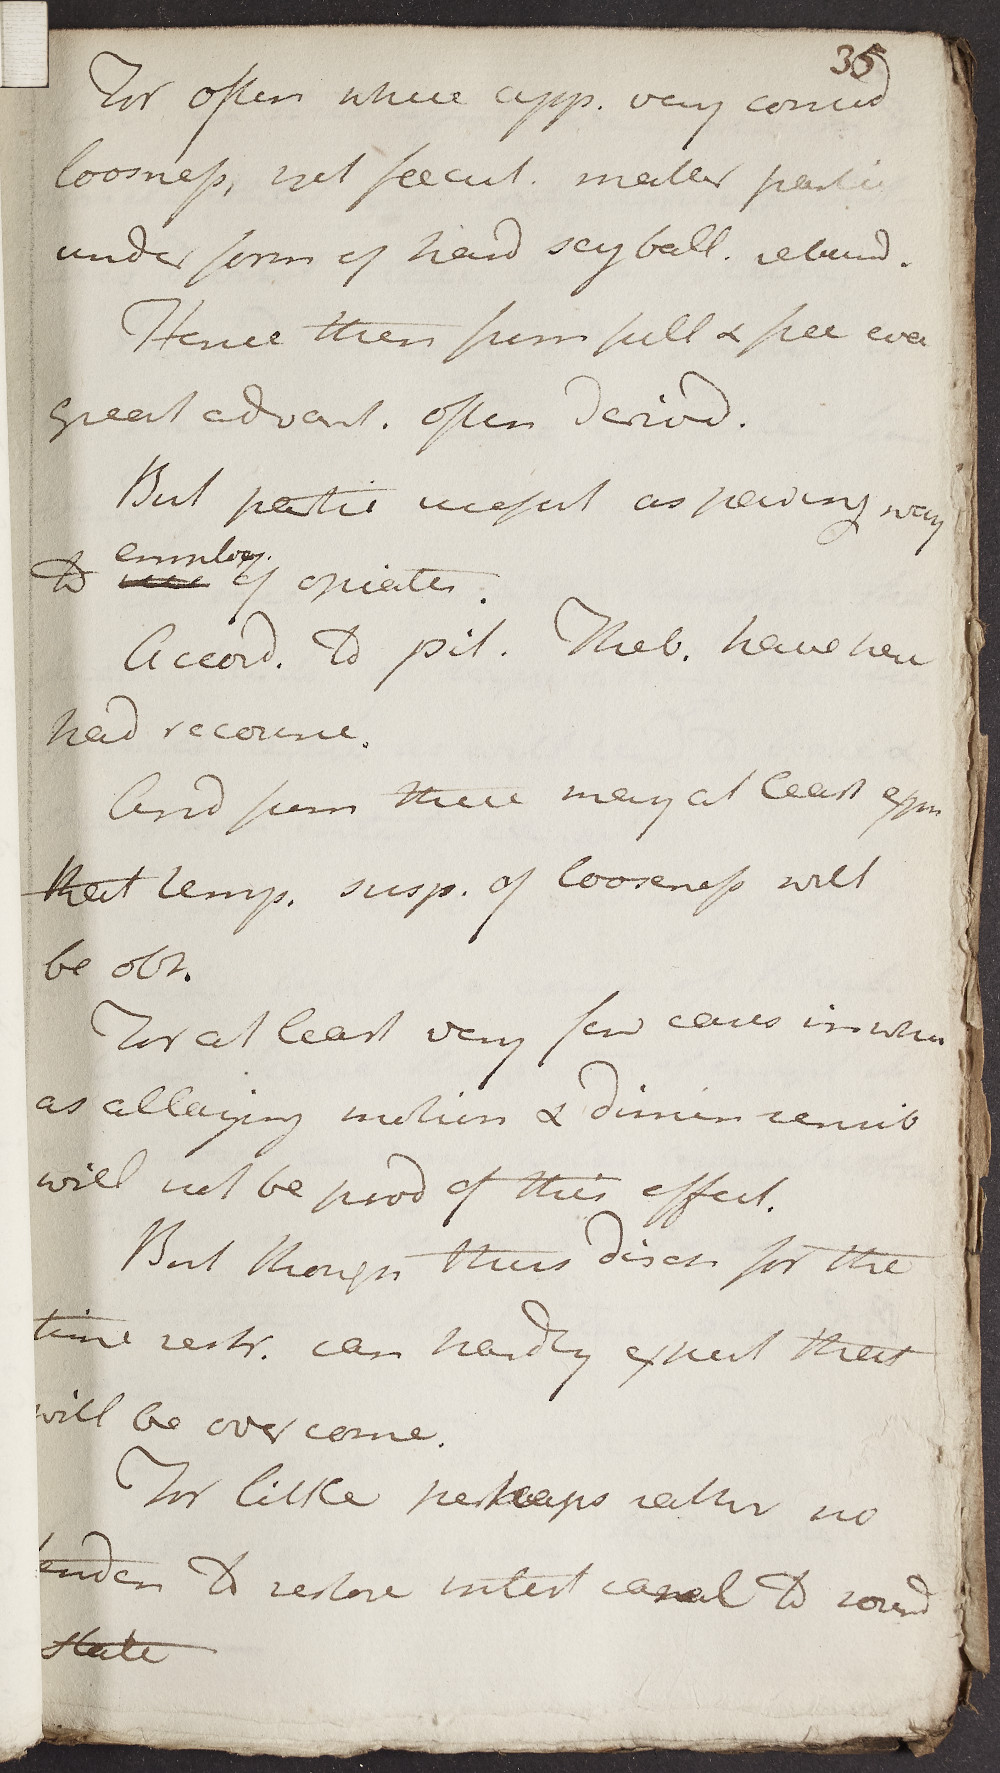 35
For often where app. very consid
loosness, yet feculent. matter partic
under form of hard scyball. retaind.
Hence then from full & free evac
great advant. often derivd.
But partic usefull as paving way
to employ. of opiates.
Accord. to pil. Theb. have here
had recourse.
And from these may at least expec
that temp. susp. of looseness will
be obt.
For at least very few cases in whic
as allaying motion & dimin sensib
will not be prod of this effect.
But though thus disch for the
time restr. can hardly expect that
will be overcome.
For little perhaps rather no
tenden to restore intest canal to sound
state